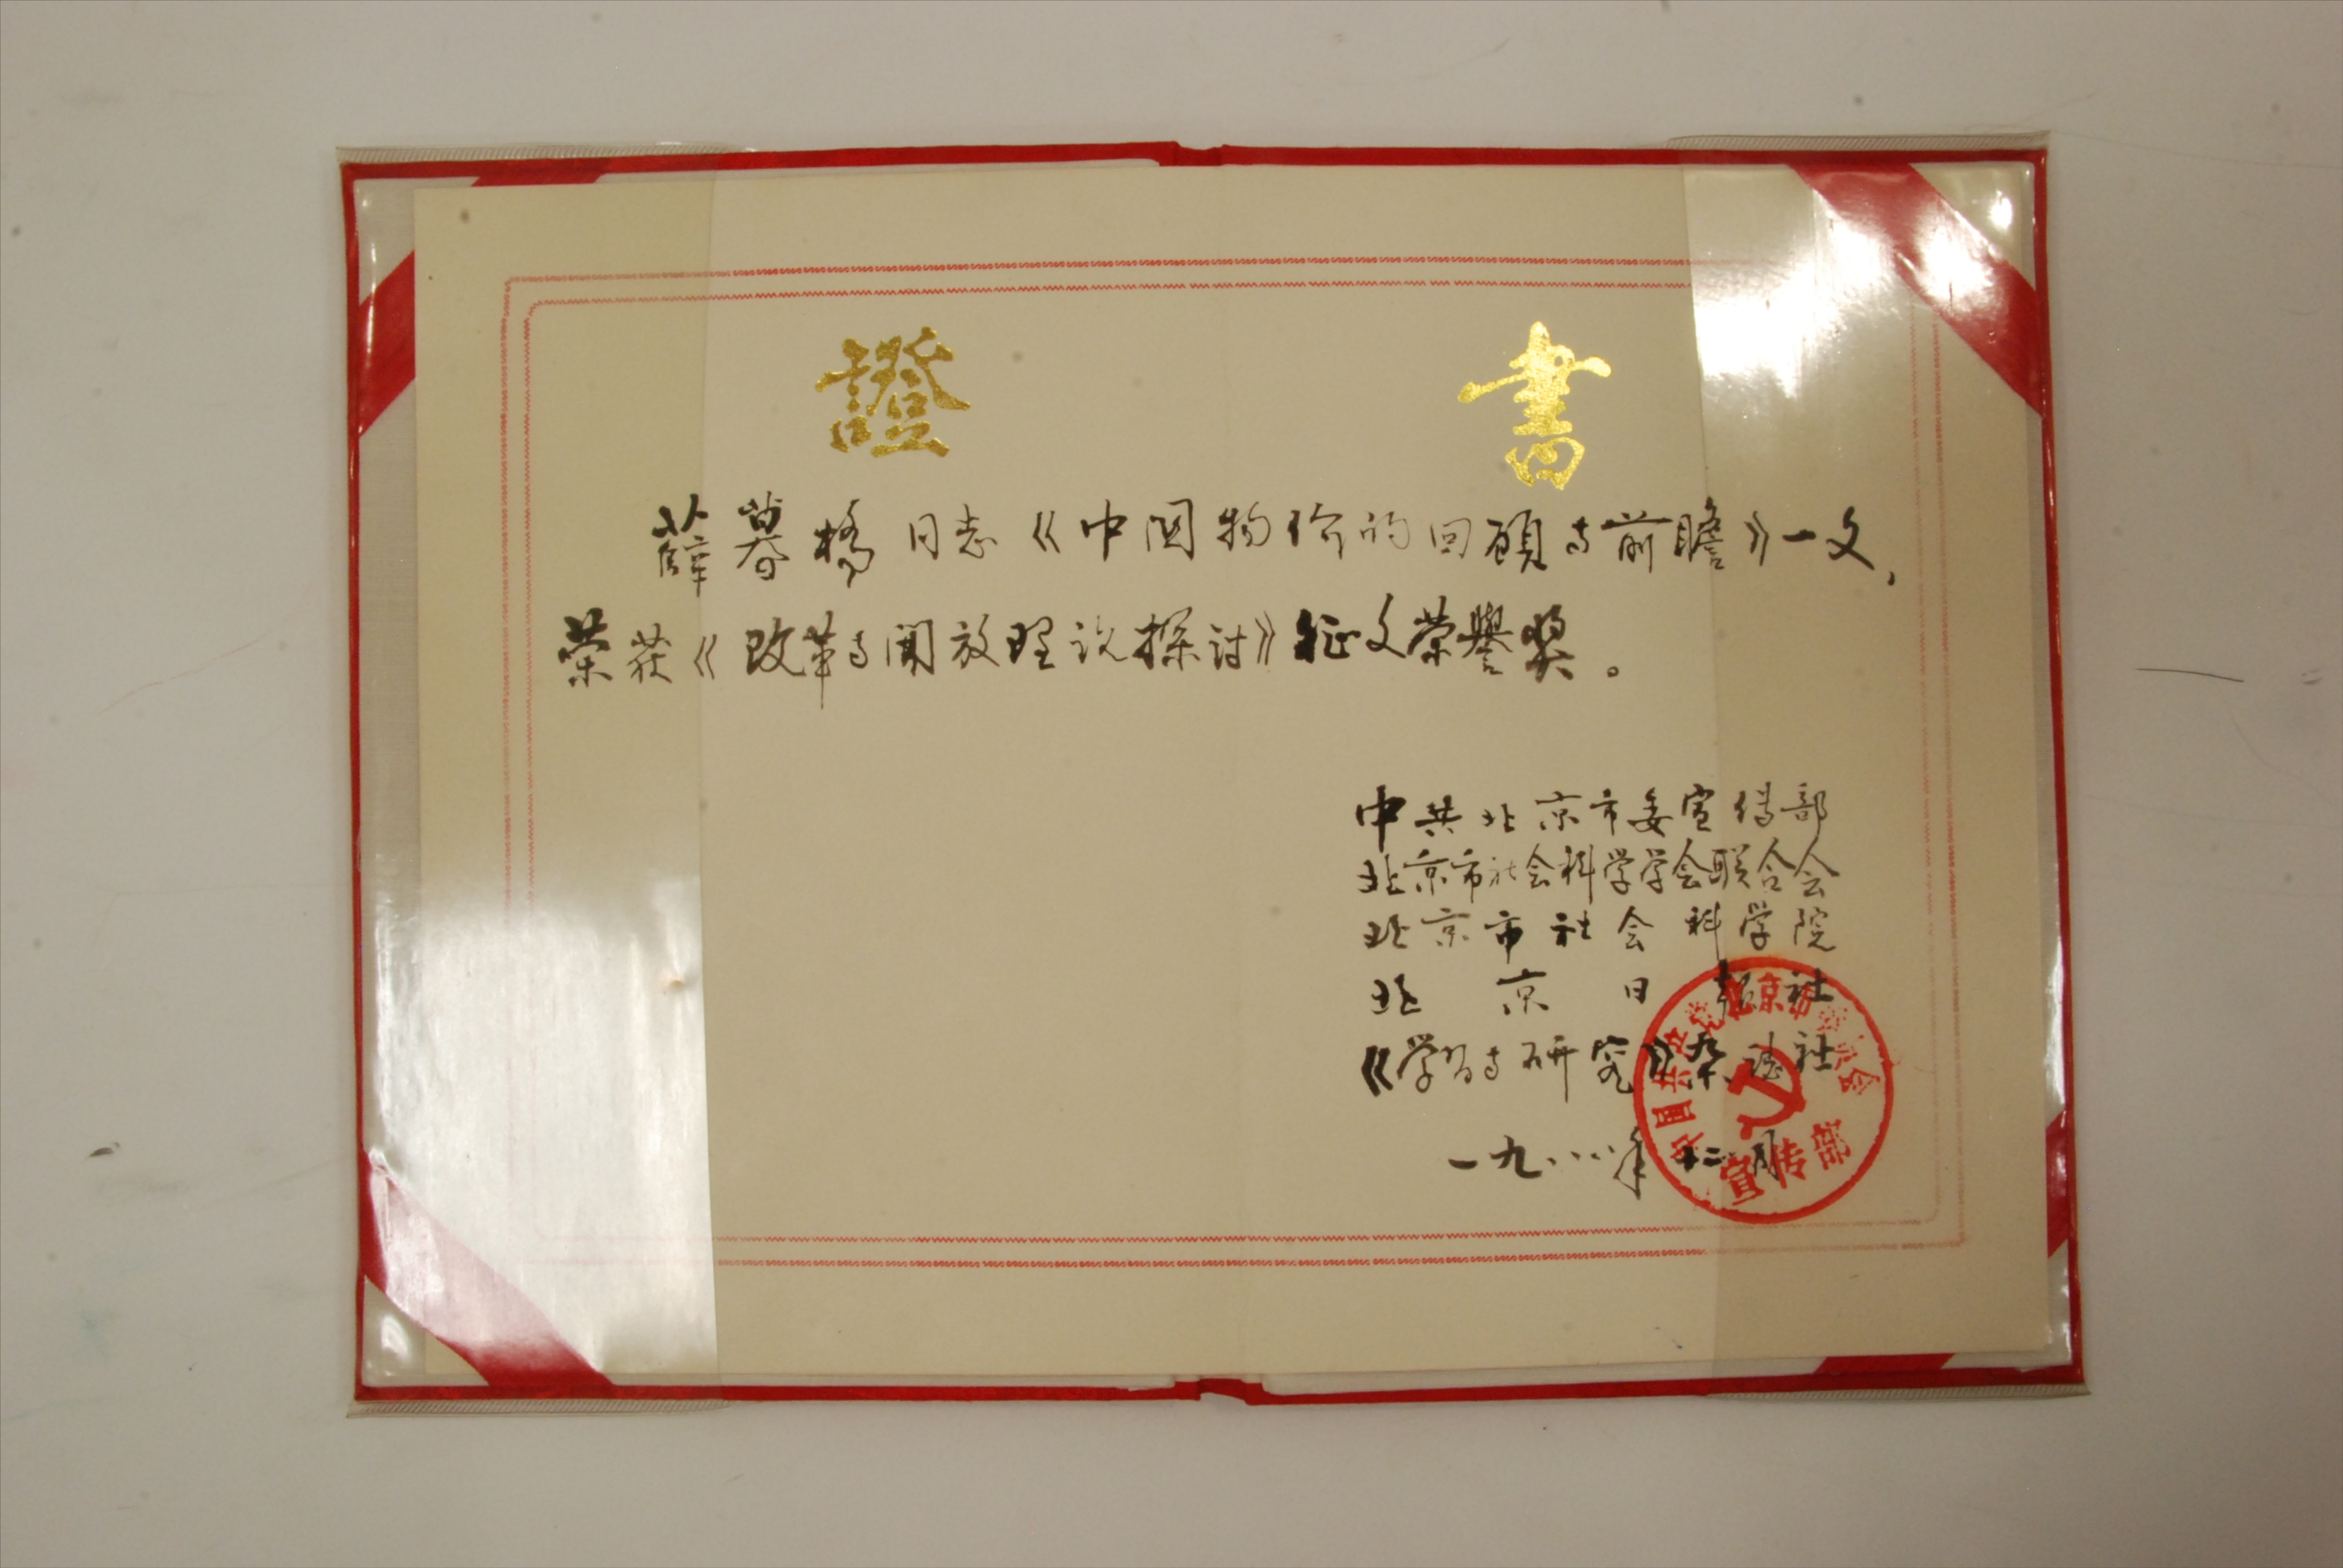 證書
薛暮橋同志《中国物价的回顾与前瞻》一文，
荣获《改革与開放理论探讨》征文荣譽奖。
中共北京市委宣传部
北京市社会科学学会联合会
北京市社会科学院
北京日报社
《学习与研究》杂志社
一九八八年十二月
中国共产党北京市委员会
宣传部